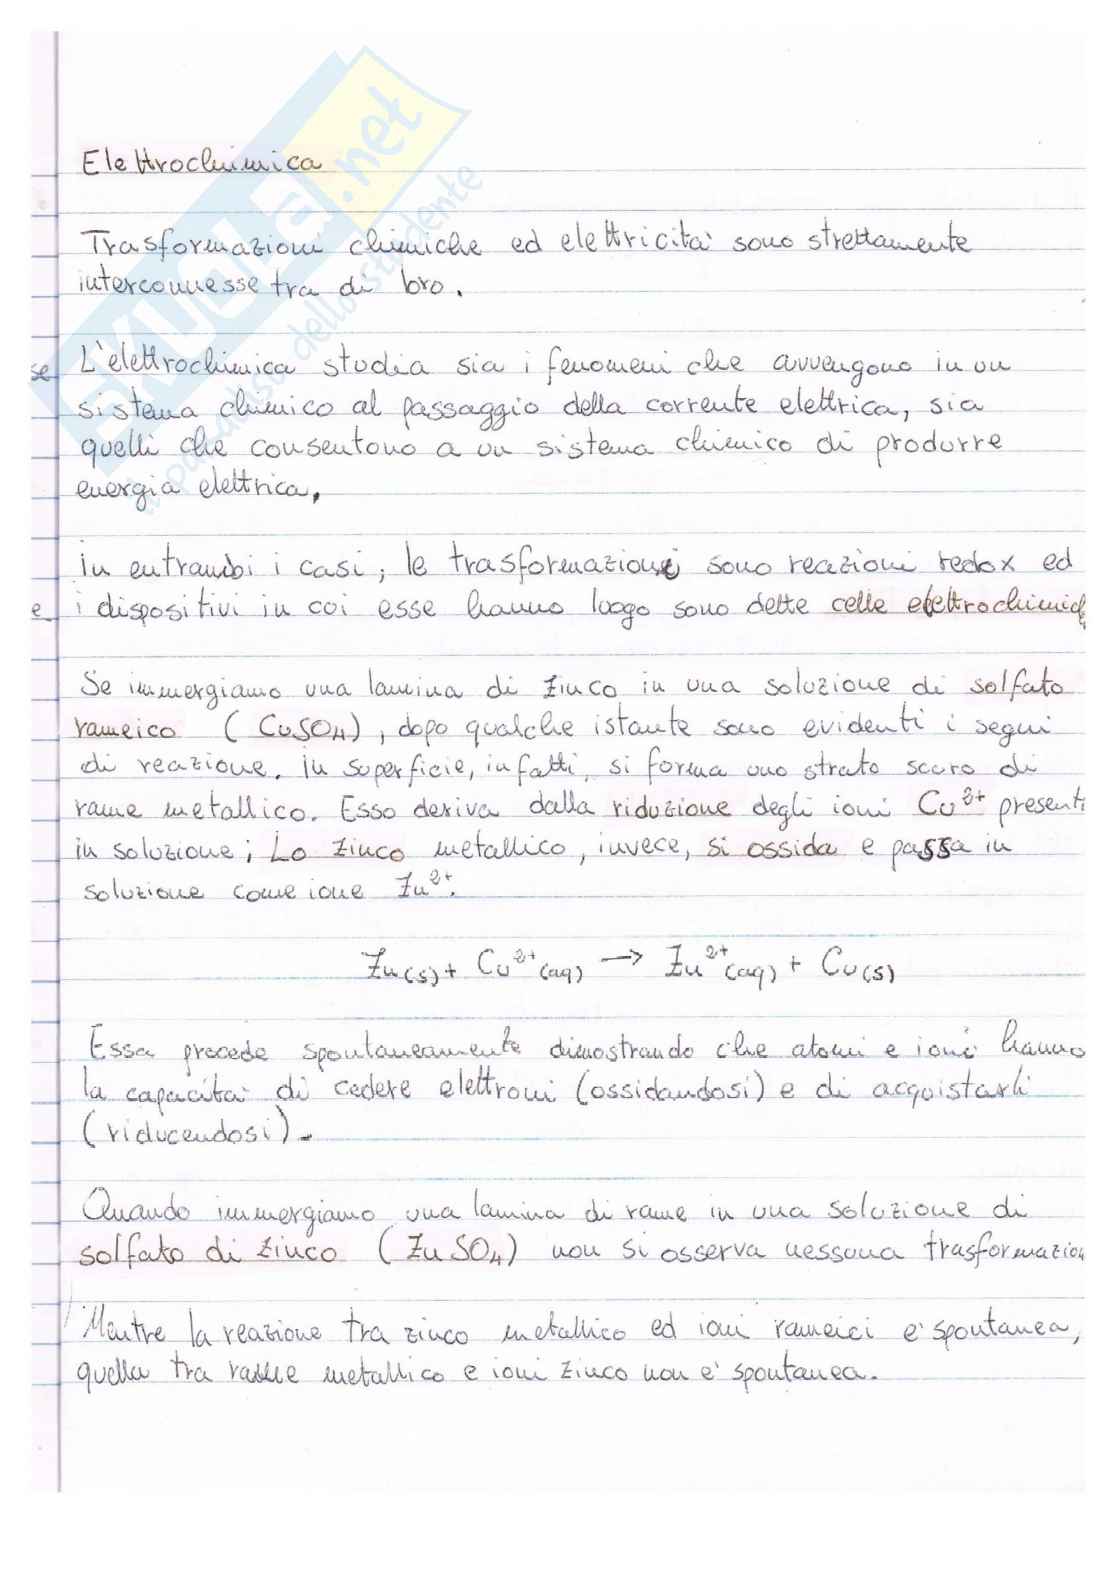 Elettrochimica
Trasformazioni chimiche ed elettricità sono strettamente
interconnesse tra di loro.
se L'elettrochimica studia sia i fenomeni che avvengono in un
sistema chimico al passaggio della corrente elettrica, sia
quelli che consentono a un sistema chimico di produrre
energia elettrica.
in entrambi i casi, le trasformazioni sono reazioni redox ed
e i dispositivi in cui esse hanno luogo sono dette celle elettrochimiche
Se immergiamo una lamina di zinco in una soluzione di solfato
rameico (CuSO₄), dopo qualche istante sono evidenti i segni
di reazione. in superficie, infatti, si forma uno strato scuro di
rame metallico. Esso deriva dalla riduzione degli ioni Cu²⁺ presenti
in soluzione; Lo zinco metallico, invece, si ossida e passa in
soluzione come ione Zn²⁺.
Zn(s) + Cu²⁺(aq) → Zn²⁺(aq) + Cu(s)
Essa procede spontaneamente dimostrando che atomi e ioni hanno
la capacità di cedere elettroni (ossidandosi) e di acquistarli
(riducendosi).
Quando immergiamo una lamina di rame in una soluzione di
solfato di zinco (ZnSO₄) non si osserva nessuna trasformazion
Mentre la reazione tra zinco metallico ed ioni rameici è spontanea,
quella tra rame metallico e ioni zinco non è spontanea.
skuola.net
il paradiso dello studente